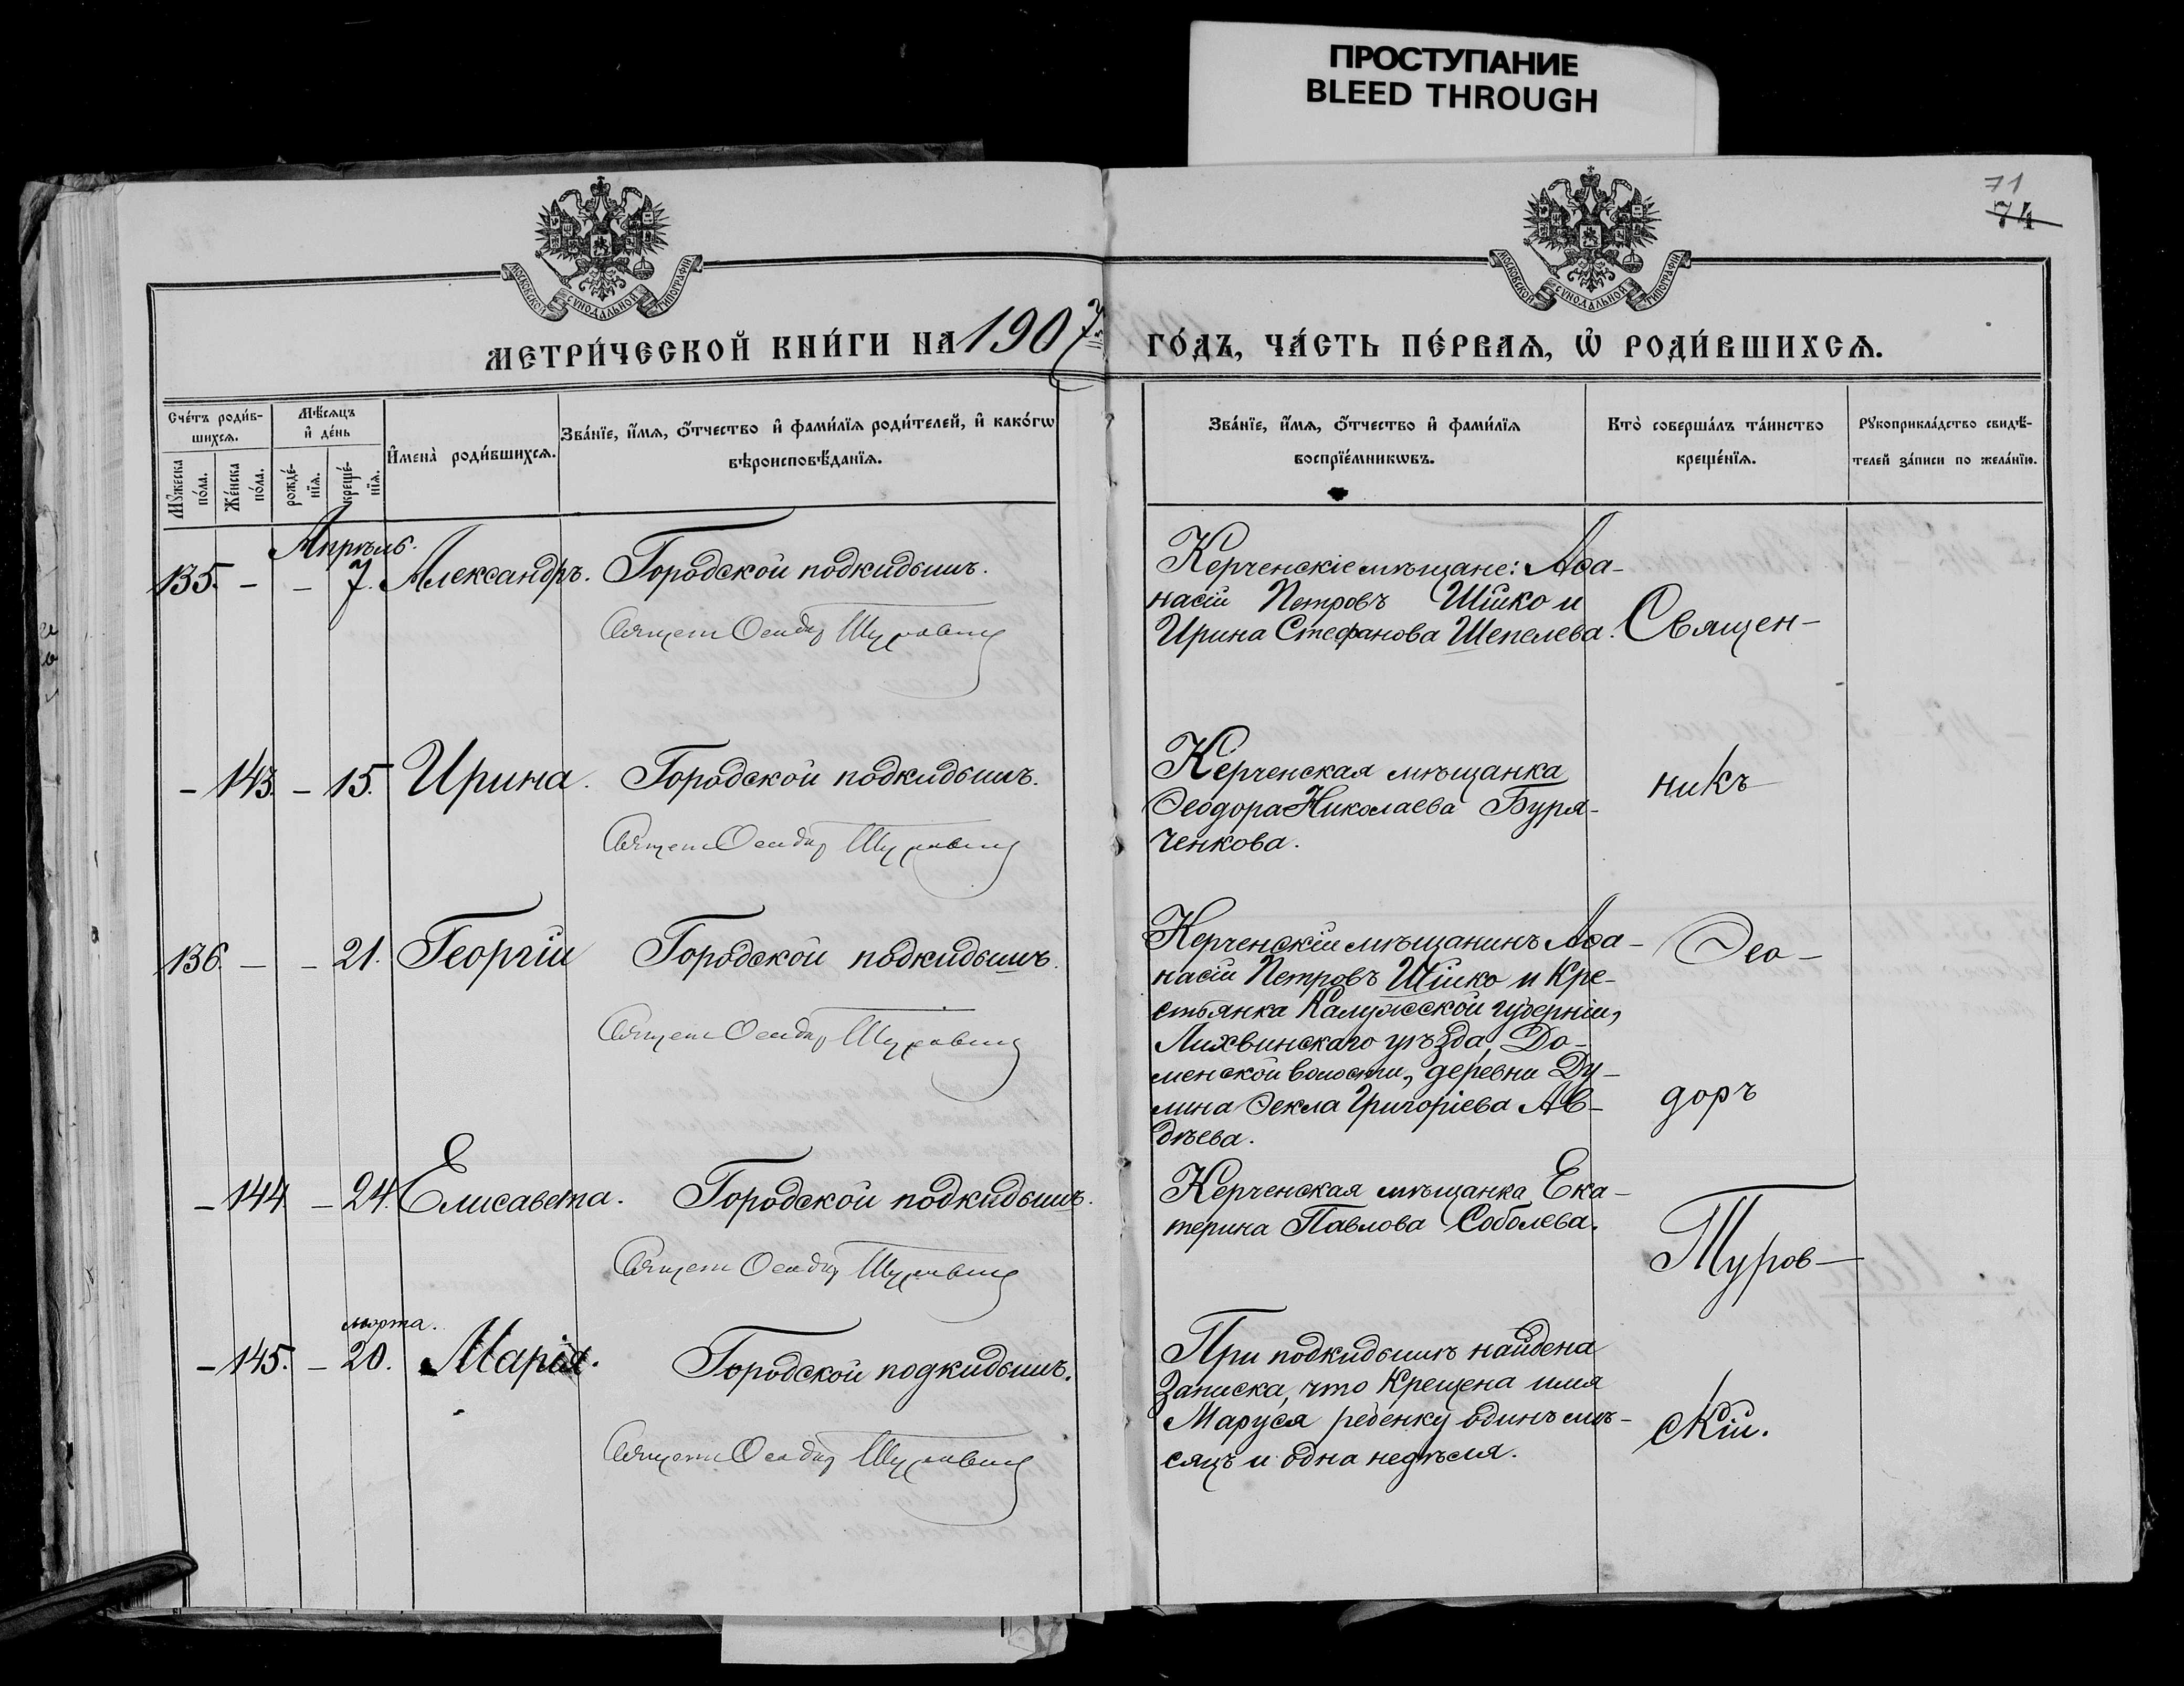 ПРОСТУПАНИЕ
BLEED THROUGH
71
74
МОСКОВСКОЙ СѴНОДАЛЬНОЙ ТИПОГРАФІИ
МОСКОВСКОЙ СѴНОДАЛЬНОЙ ТИПОГРАФІИ
МЕТРИ́ЧЕСКОЙ КНИ́ГИ НА 1907 ГО́ДЪ, ЧА́СТЬ ПЕ́РВАѦ, Ѡ҆ РОДИ́ВШИХСѦ.
Сче́тъ роди́в-
шихсѧ.
Мꙋжеска по́ла.
Же́нска по́ла.
Мѣ́сѧцъ
и҆ де́нь
рожде́-
нїѧ.
креще́-
нїѧ.
И҆мена̀ роди́вшихсѧ.
Зва́нїе, и҆́мѧ, ѻ҆́тчество и҆ фами́лїѧ роди́телей, и҆ како́гѡ
вѣроисповѣ́данїѧ.
Зва́нїе, и҆́мѧ, ѻ҆́тчество и҆ фами́лїѧ
воспрїе́мникѡвъ.
Кто̀ соверша́лъ та́инство
креще́нїѧ.
Рꙋкоприкла́дство свидѣ́-
телей за́писи по жела́нїю.
Апрѣль.
135. - - 7. Александръ. Городской подкидышъ.
Керченскіе мѣщане: Аѳа-
насій Петровъ Шійко и
Ирина Стефанова Шепелева.
Священ-
- 143. - 15. Ирина. Городской подкидышъ.
Керченская мѣщанка
Ѳеодора Николаева Буря-
ченкова.
никъ
136. - - 21. Георгій Городской подкидышъ.
Керченскій мѣщанинъ Аѳа-
насій Петровъ Шійко и Кре-
стьянка Калужской губерніи,
Лихвинскаго уѣзда, До-
менской волости, деревни Ду-
лина Ѳекла Григоріева Ав-
дѣева.
Ѳео-
доръ
- 144. - 24. Елисавета. Городской подкидышъ.
Керченская мѣщанка Ека-
терина Павлова Соболева.
Туров-
марта.
- 145. - 20. Марія. Городской подкидышъ.
При подкидышѣ найдена
Записка, что Крещена имя
Маруся ребенку одинъ мѣ-
сяцъ и одна недѣля.
скій.